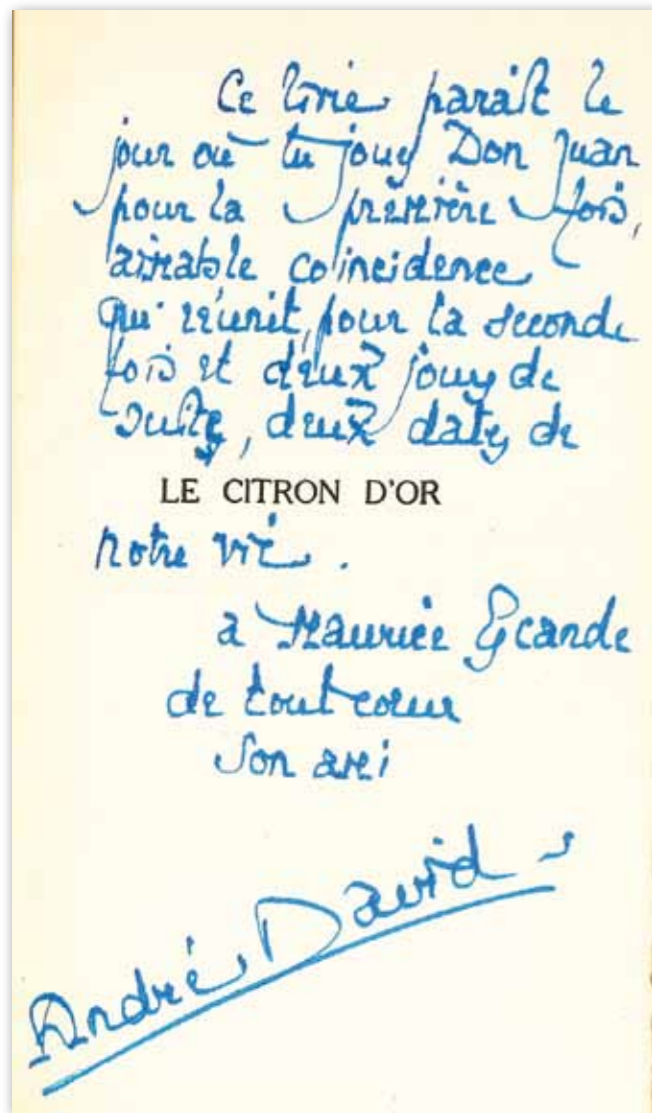 Ce livre paraît le
jour où tu joues Don Juan
pour la première fois,
aimable coïncidence
qui réunit, pour la seconde
fois et deux jours de
suite, deux dates de
LE CITRON D'OR
notre vie.
a Maurice Escande
de tout cœur
son ami
André David